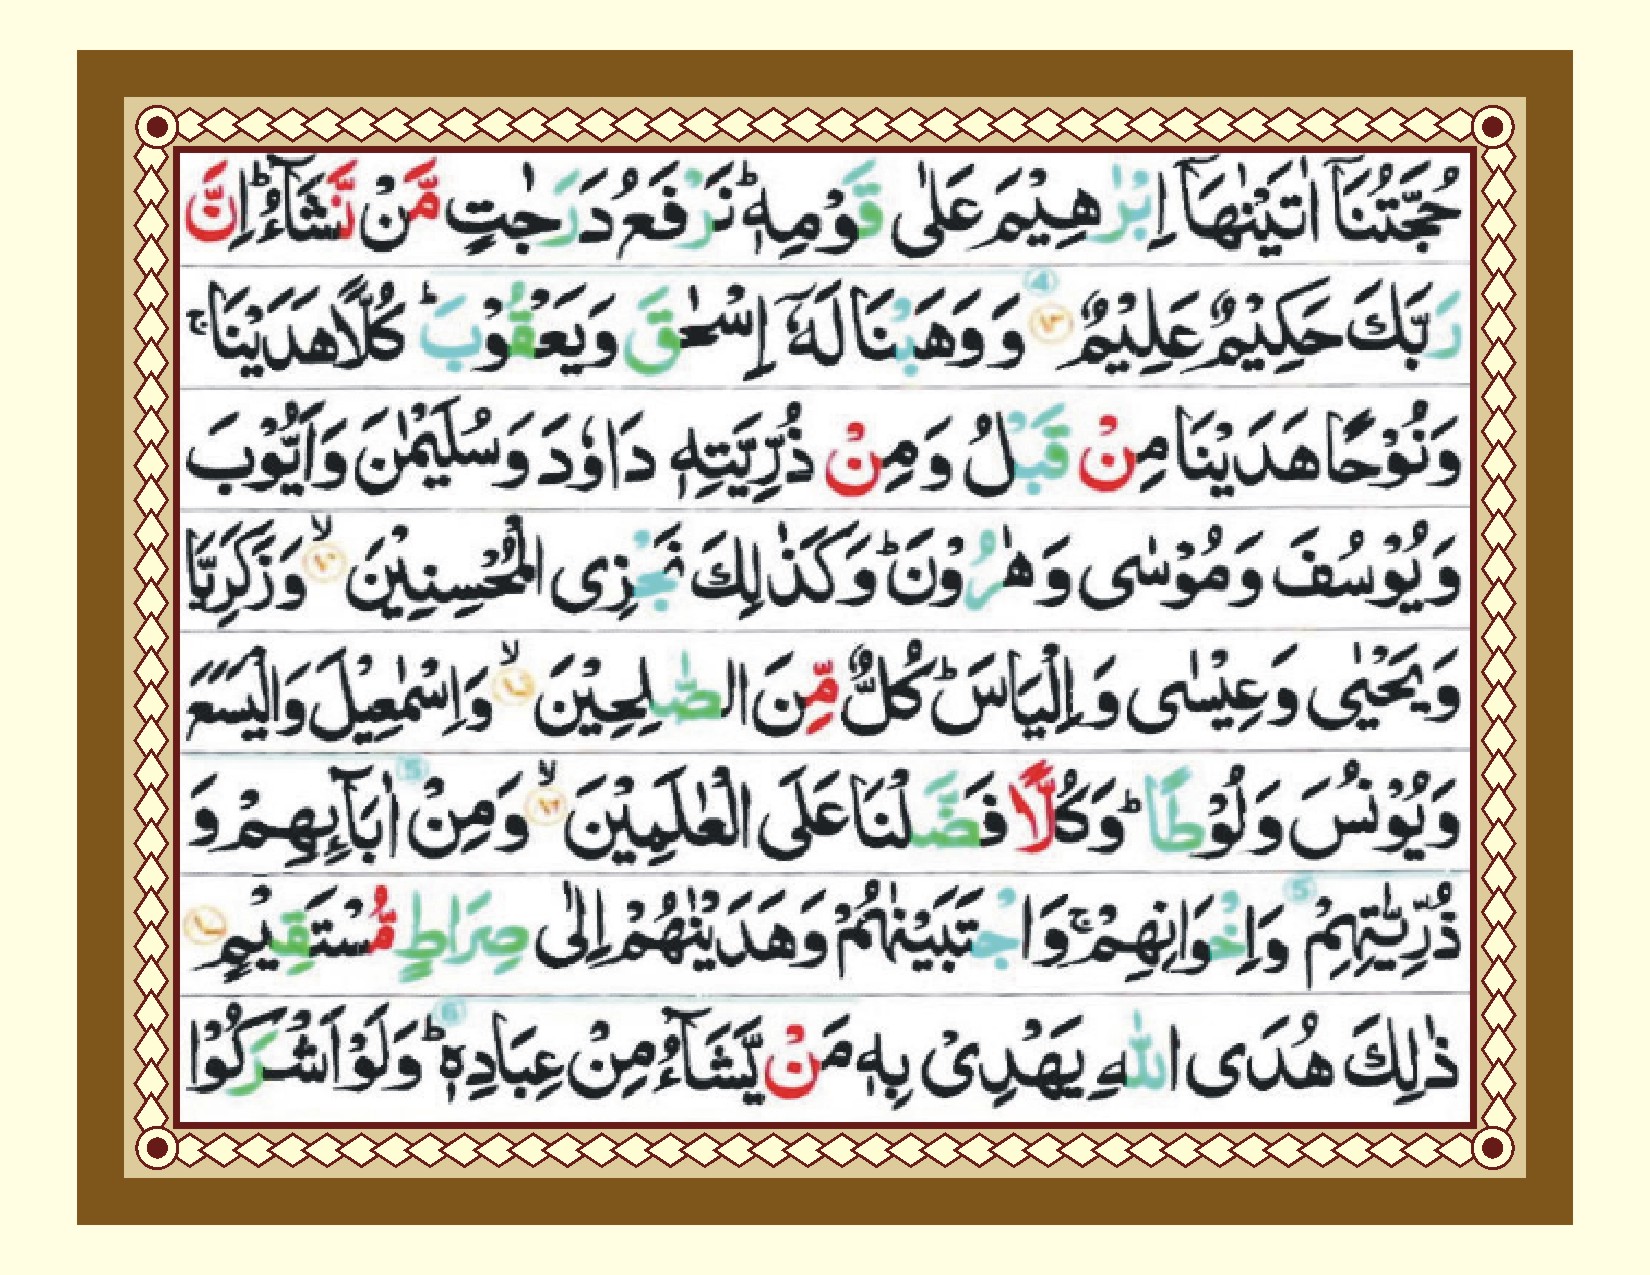 حُجَّتُنَاۤ اٰتَيْنٰهَاۤ اِبْرٰهِيْمَ عَلٰى قَوْمِهٖؕ نَرْفَعُ دَرَجٰتٍ مَّنْ نَّشَآءُؕ اِنَّ
رَبَّكَ حَكِيْمٌ عَلِيْمٌ ۝۸۳ وَ وَهَبْنَا لَهٗۤ اِسْحٰقَ وَيَعْقُوْبَؕ كُلًّا هَدَيْنَاۚ
وَنُوْحًا هَدَيْنَا مِنْ قَبْلُ وَمِنْ ذُرِّيَّتِهٖ دَاوٗدَ وَسُلَيْمٰنَ وَاَيُّوْبَ
وَيُوْسُفَ وَمُوْسٰى وَهٰرُوْنَؕ وَكَذٰلِكَ نَجْزِى الْمُحْسِنِيْنَ ۝۸۴ۙ وَزَكَرِيَّا
وَيَحْيٰى وَعِيْسٰى وَاِلْيَاسَؕ كُلٌّ مِّنَ الصّٰلِحِيْنَ ۝۸۵ۙ وَاِسْمٰعِيْلَ وَالْيَسَعَ
وَيُوْنُسَ وَلُوْطًاؕ وَكُلًّا فَضَّلْنَا عَلَى الْعٰلَمِيْنَ ۝۸۶ۙ وَمِنْ اٰبَآئِهِمْ وَ
ذُرِّيّٰتِهِمْ وَاِخْوَانِهِمْۚ وَاجْتَبَيْنٰهُمْ وَهَدَيْنٰهُمْ اِلٰى صِرَاطٍ مُّسْتَقِيْمٍ ۝۸۷
ذٰلِكَ هُدَى اللّٰهِ يَهْدِىْ بِهٖ مَنْ يَّشَآءُ مِنْ عِبَادِهٖؕ وَلَوْ اَشْرَكُوْا